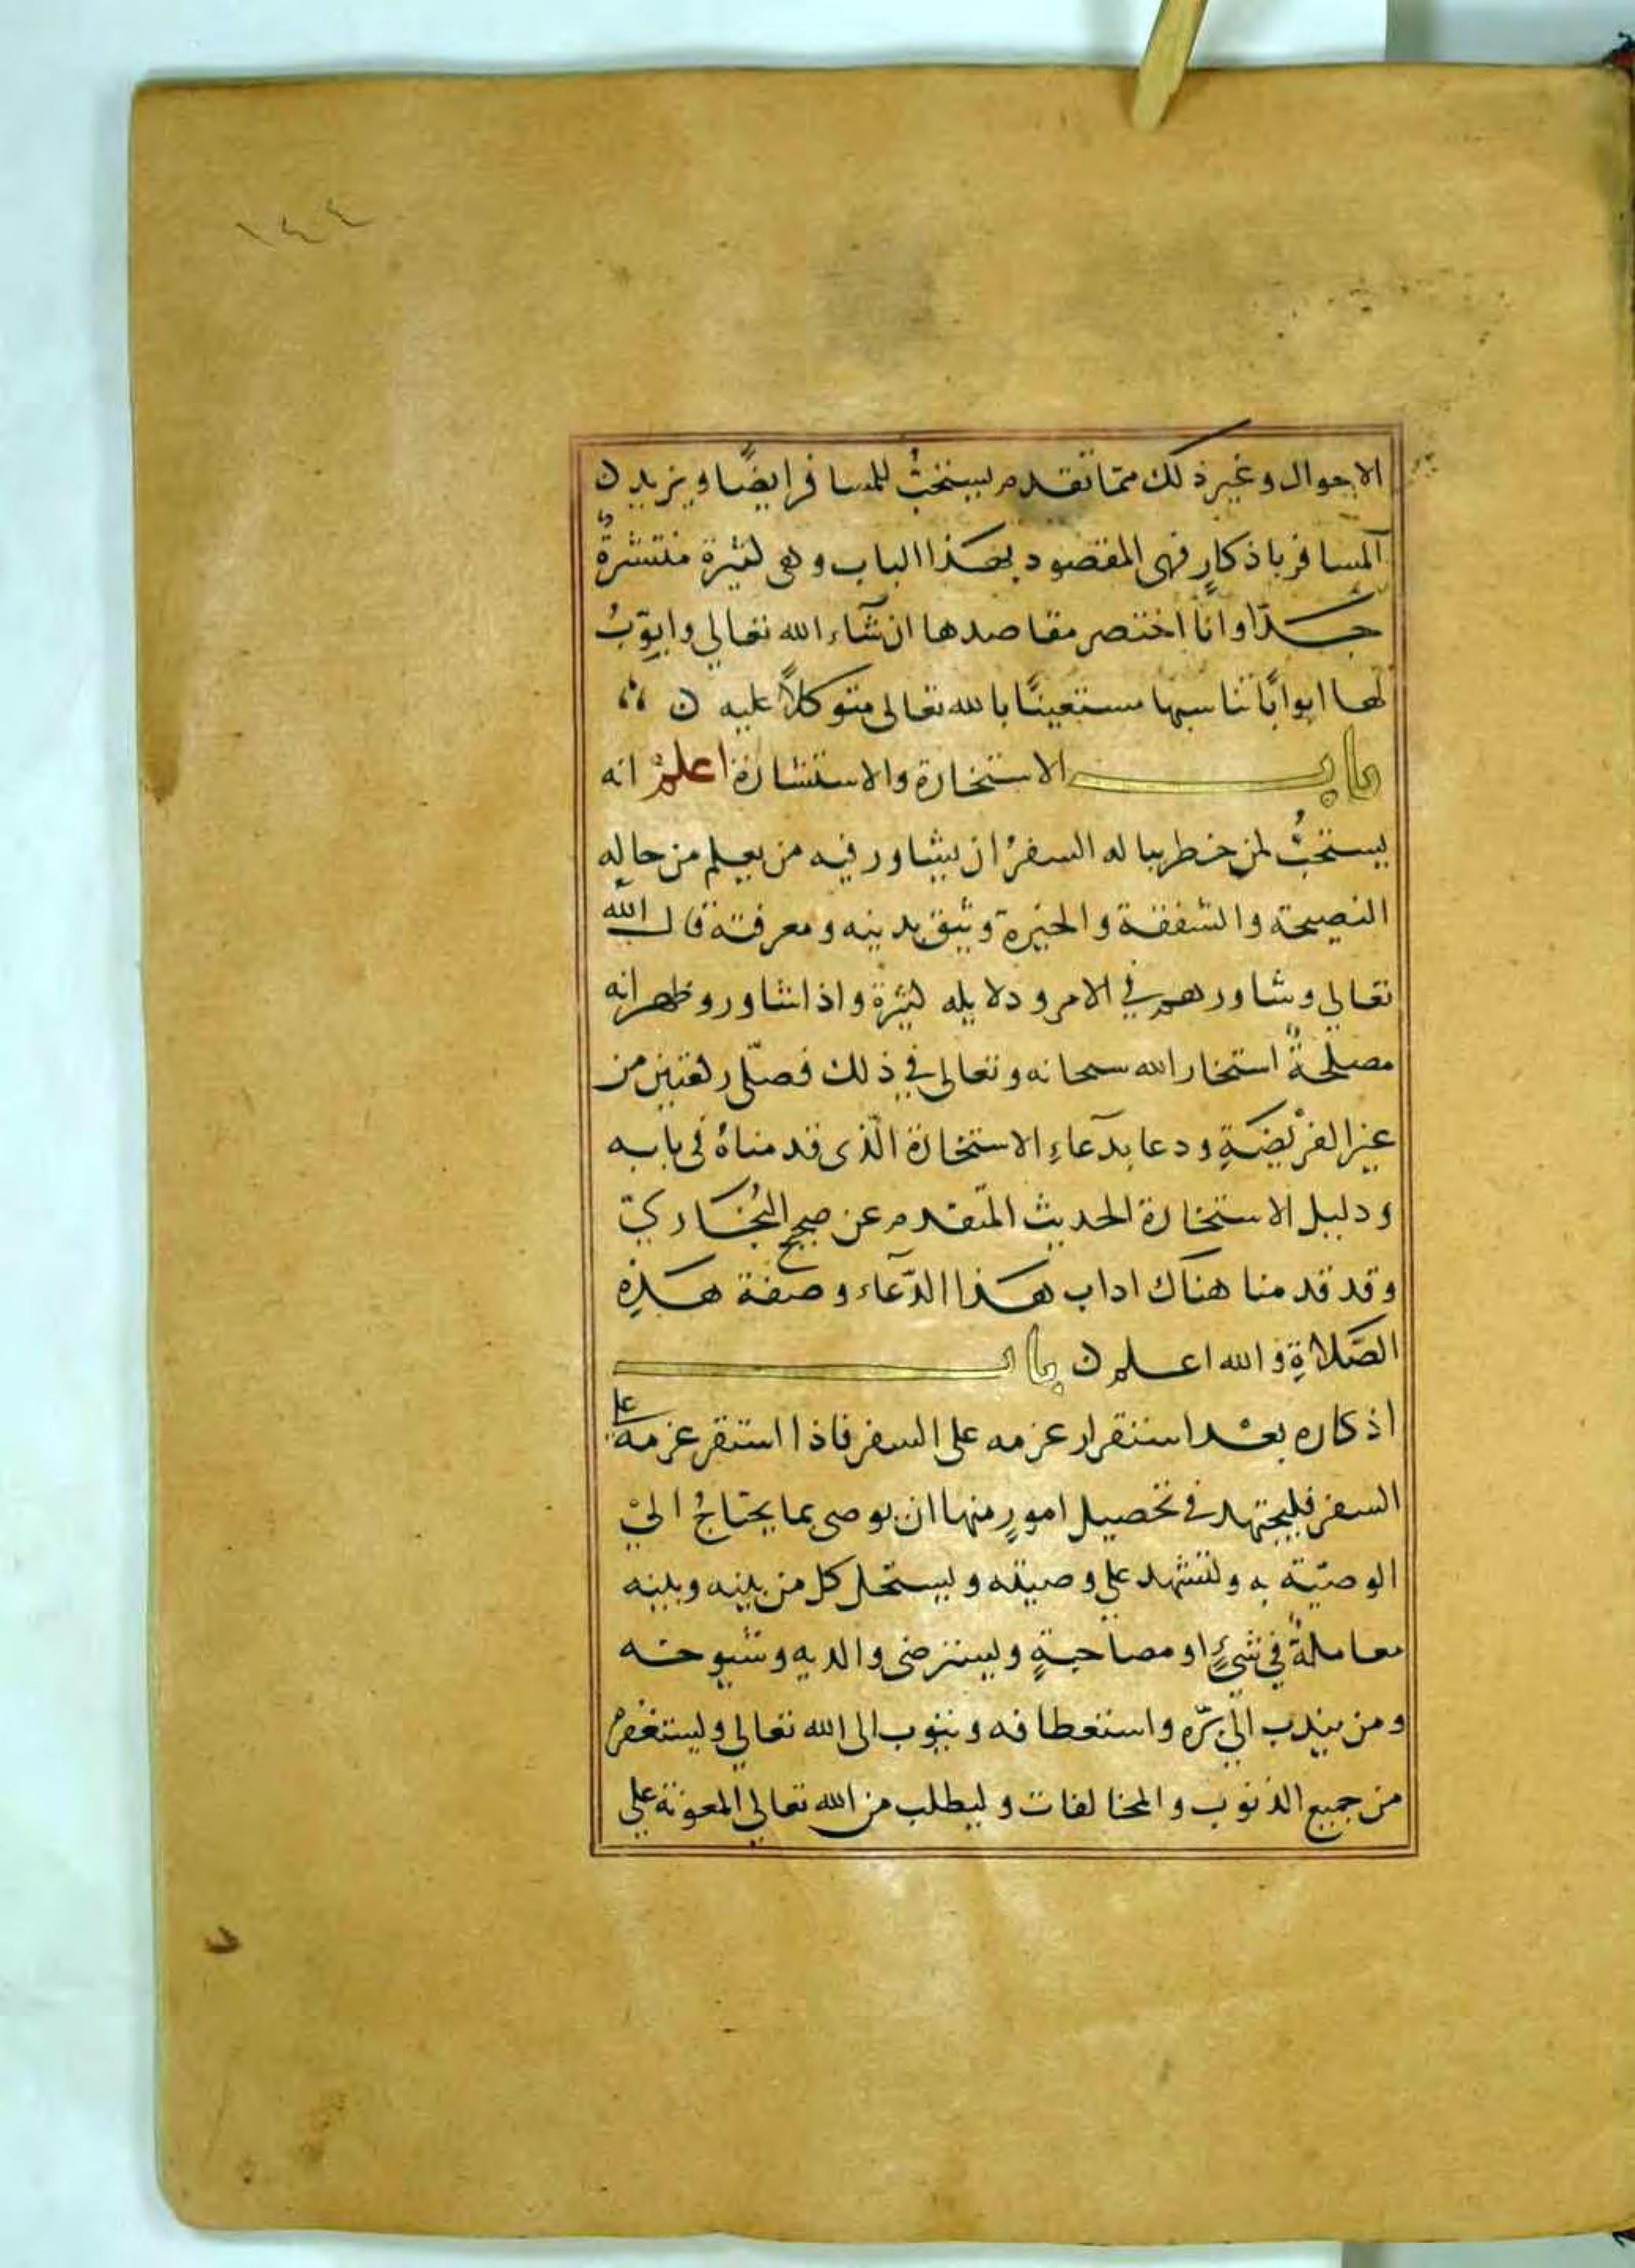 ١٤٤
الاحوال وغير ذلك مما تقدم يستحبُّ للمسافر ايضًا ويزيد ن
المسافر باذكارٍ فهى المقصود بهذا الباب وهى كثيرة منتشرةٌ
جدّا وانا اختصر مقاصدها ان شآء الله تعالي وابوّبُ
لها ابوابًا تناسبها مستعينًا بالله تعالى متوكلًا عليه ن
باب الاستخارة والاستشارة اعلم انه
يستحبُّ لمن خطر بباله السفرُ ان يشاور فيه من يعلم من حاله
النصيحة والشفقة والخبرة ويثق بدينه ومعرفته قال الله
تعالي وشاورهم في الامر ودلايله كثيرة واذا شاور وظهر انه
مصلحةٌ استخار الله سبحانه وتعالى في ذلك فصلّى ركعتين من
غير الفريْضَةِ ودعا بدعآءِ الاستخارة الّذى قدمناهُ فى بابه
ودليل الاستخارة الحديث المتقدم عن صحيح البُخَاريّ
وقد قدمنا هناك اداب هذا الدّعآء وصفة هذِهِ
الصَّلاةِ والله اعلم ن باب
اذكاره بعْد استقرار عزمه على السفر فاذا استقر عزمه على
السفر فليجتهد في تحصيل امورٍ منها ان يوصى بما يحتاجُ اليْ
الوصيّة به ولتشهد على وصيته ويستحل كل من بينه وبينه
معاملةٌ في شئٍ او مصاحبةٍ وليسترضى والديه وشيوخه
ومن يندب الي برّه واستعطافه ويتوب الى الله تعالي وليستغفرْ
من جميع الذنوب والمخالفات وليطلب من الله تعالي المعونة على